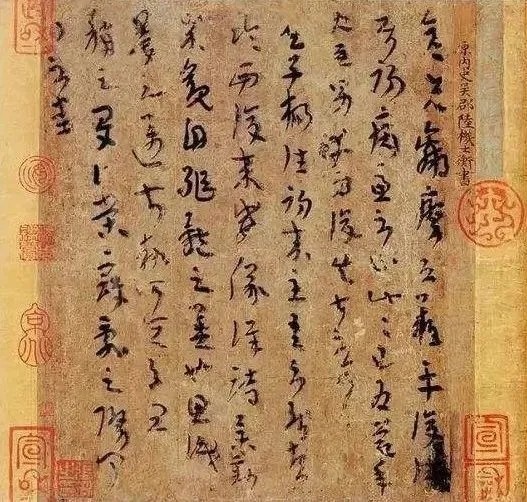 晉內史吳郡陸機士衡書
彥先羸瘵恐難平復往屬
初病慮不止此此已為慶承使
唯男幸為復失前憂耳
吳子楊往初來主吾不能盡
臨西復來威儀詳跱舉動
成觀自軀體之美也思識
量之邁前勢所恒有宜
稱之夏伯榮寇亂之際聞
問不悉